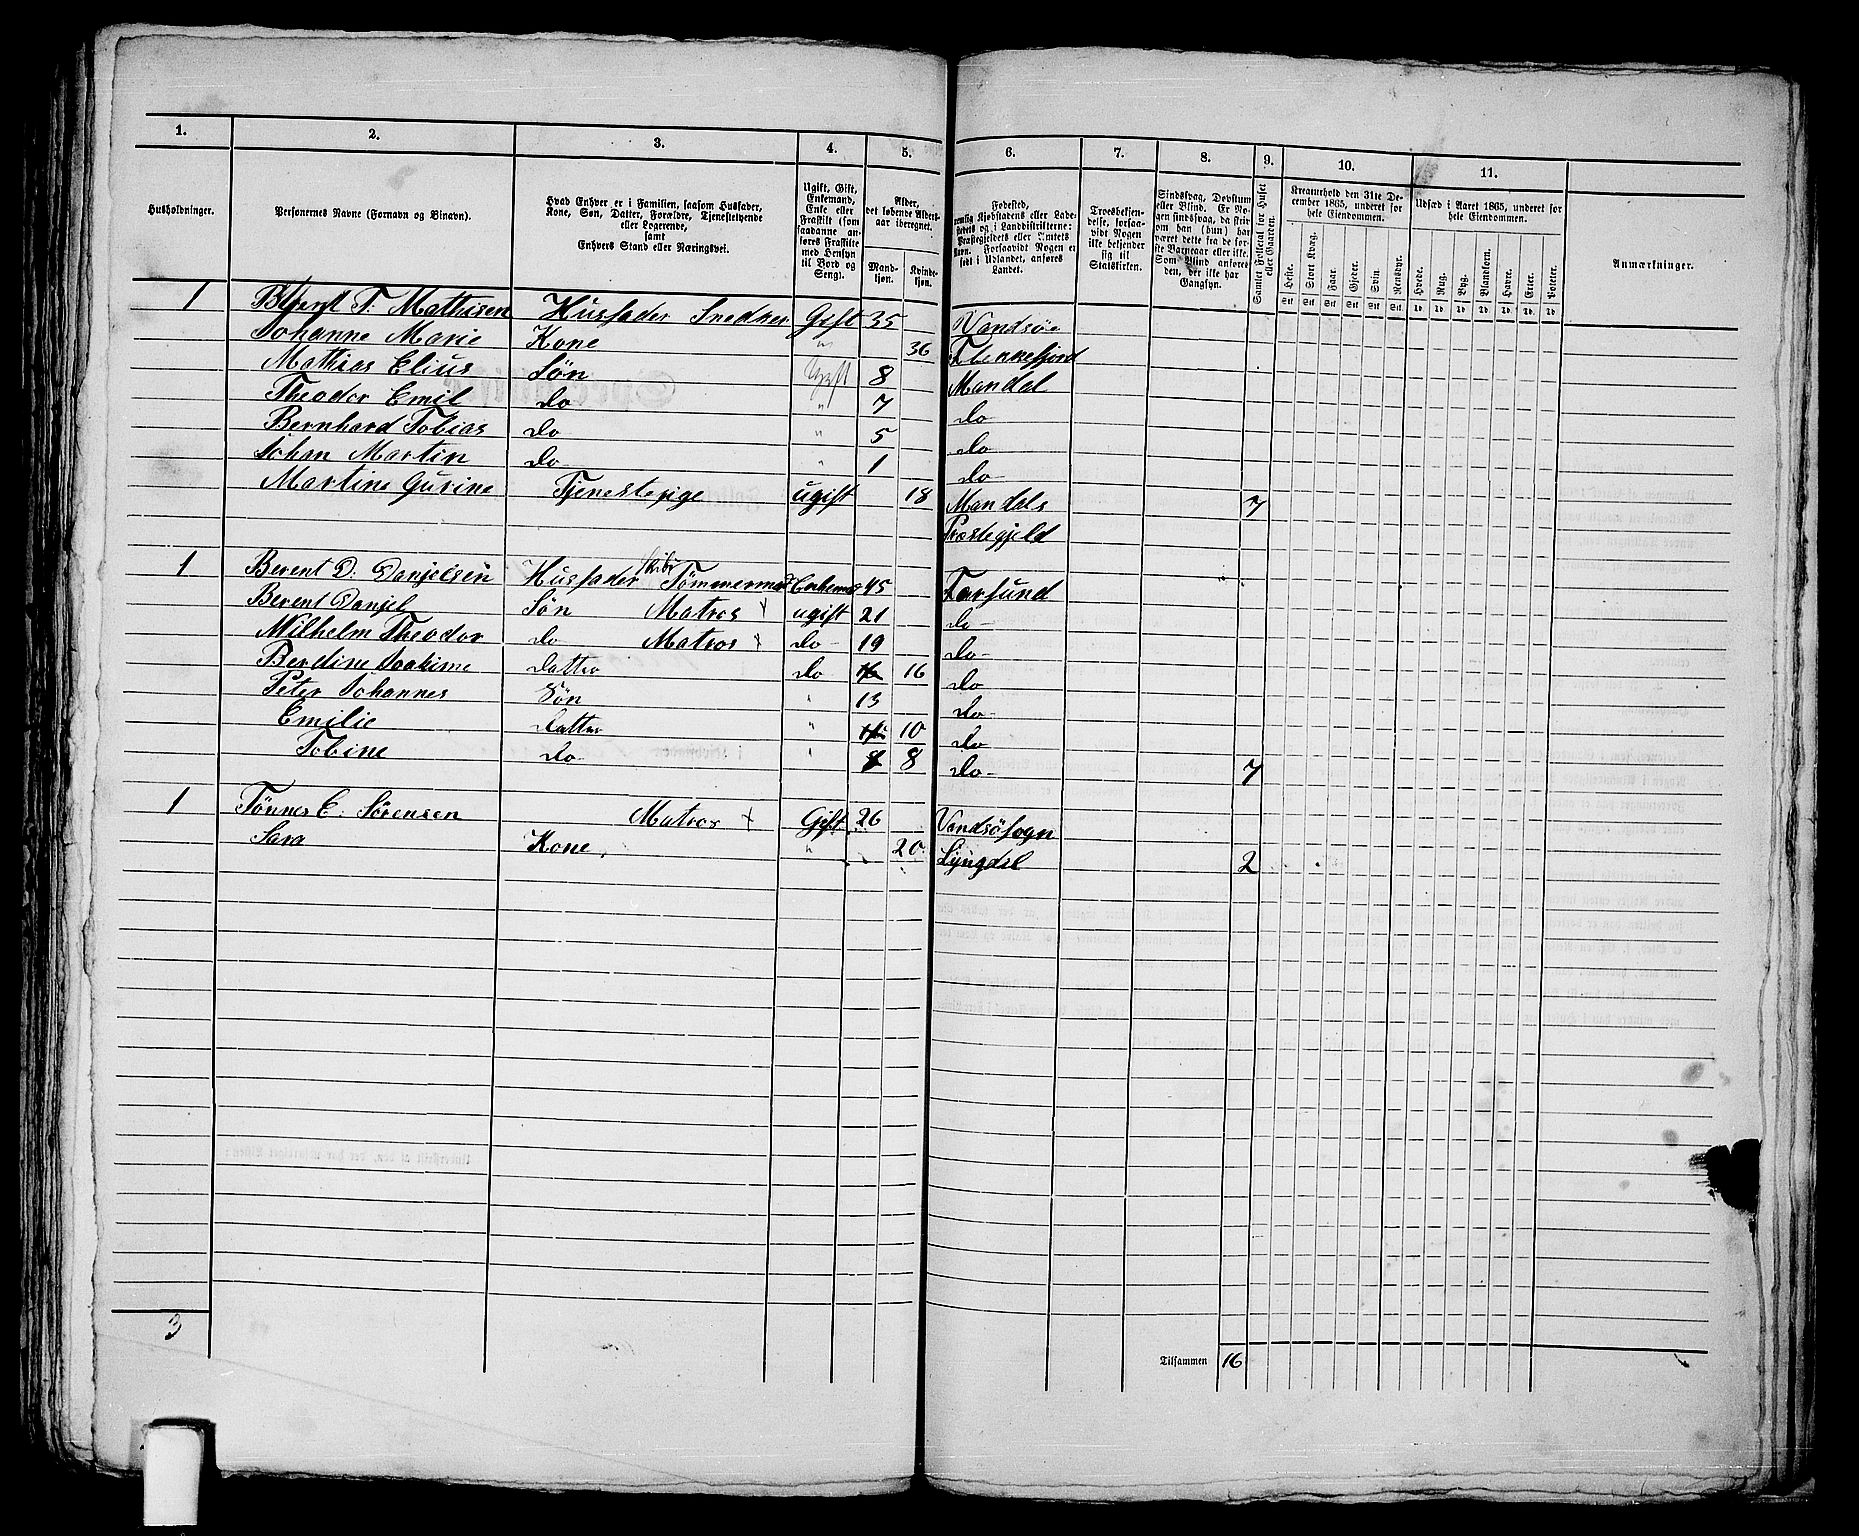 1. 2. 3. 4. 5. 6. 7. 8. 9. 10. 11.
Husholdninger.
Personernes Navne (Fornavn og Binavn).
Hvad Enhver er i Familien, saasom Husfader,
Kone, Søn, Datter, Forældre, Tjenestetyende
eller Logerende,
samt
Enhvers Stand eller Næringsvei.
Ugift, Gift,
Enkemand,
Enke eller
Fraskilt (som
saadanne an-
føres Fraskilte
med Hensyn
til Bord og
Seng).
Alder,
det løbende Alders-
aar iberegnet.
Mand-
kjøn.
Kvinde-
kjøn.
Fødested,
nemlig Kjøbstadens eller Lade-
stedets og i Landdistrikterne:
Præstegjeldets eller Amtets
Navn. Forsaavidt Nogen er
født i Udlandet, anføres
Landet.
Troesbekjen-
delse, forsaa-
vidt Nogen
ikke bekjender
sig til
Statskirken.
Sindssvag, Døvstum
eller Blind. Er No-
gen sindssvag, da skri-
ves om han (hun) har
været dette fra de før-
ste Barneaar eller ikke.
Som Blind anføres
den, der ikke har
Gangsyn.
Samlet Folketal for Huset
eller Gaarden.
Kreaturhold den 31te De-
cember 1865, underet for
hele Eiendommen.
Heste. Stort Kvæg. Faar. Gjeder. Svin. Rensdyr.
Stk Stk Stk Stk Stk Stk
Udsæd i Aaret 1865, underet for
hele Eiendommen.
Hvede. Rug. Byg. Blandkorn. Havre. Erter. Poteter.
Td. Td. Td. Td. Td. Td. Td.
Anmærkninger.
1 Berent T. Mathisen Husfader Snedker Gift 35 Vandsøe
Johanne Marie Kone " 36 Flekkefjord
Mathias Elius Søn Ugift 8 Mandal
Theodor Emil do " 7 do
Bernhard Tobias do " 5 do
Johan Martin do " 1 do
Martine Gurine Tjenestepige ugift 18 Mandals 7
Præstegjeld
1 Berent D. Danjelsen Husfader Skibs Tømmermd Enkemd 45 Farsund
Berent Danjel Søn Matros + ugift 21 do
Milhelm Theodor do Matros + do 19 do
Berdine Joakime Datter do 16 16 do
Peter Johannes Søn " 13 do
Emilie Datter " 10 do
Tobine do " 8 8 do 7
1 Tønnes E. Sörensen Matros + Gift 26 Vandsö sogn
Sara Kone " 20 Lyngdal 2
3
Tilsammen 16